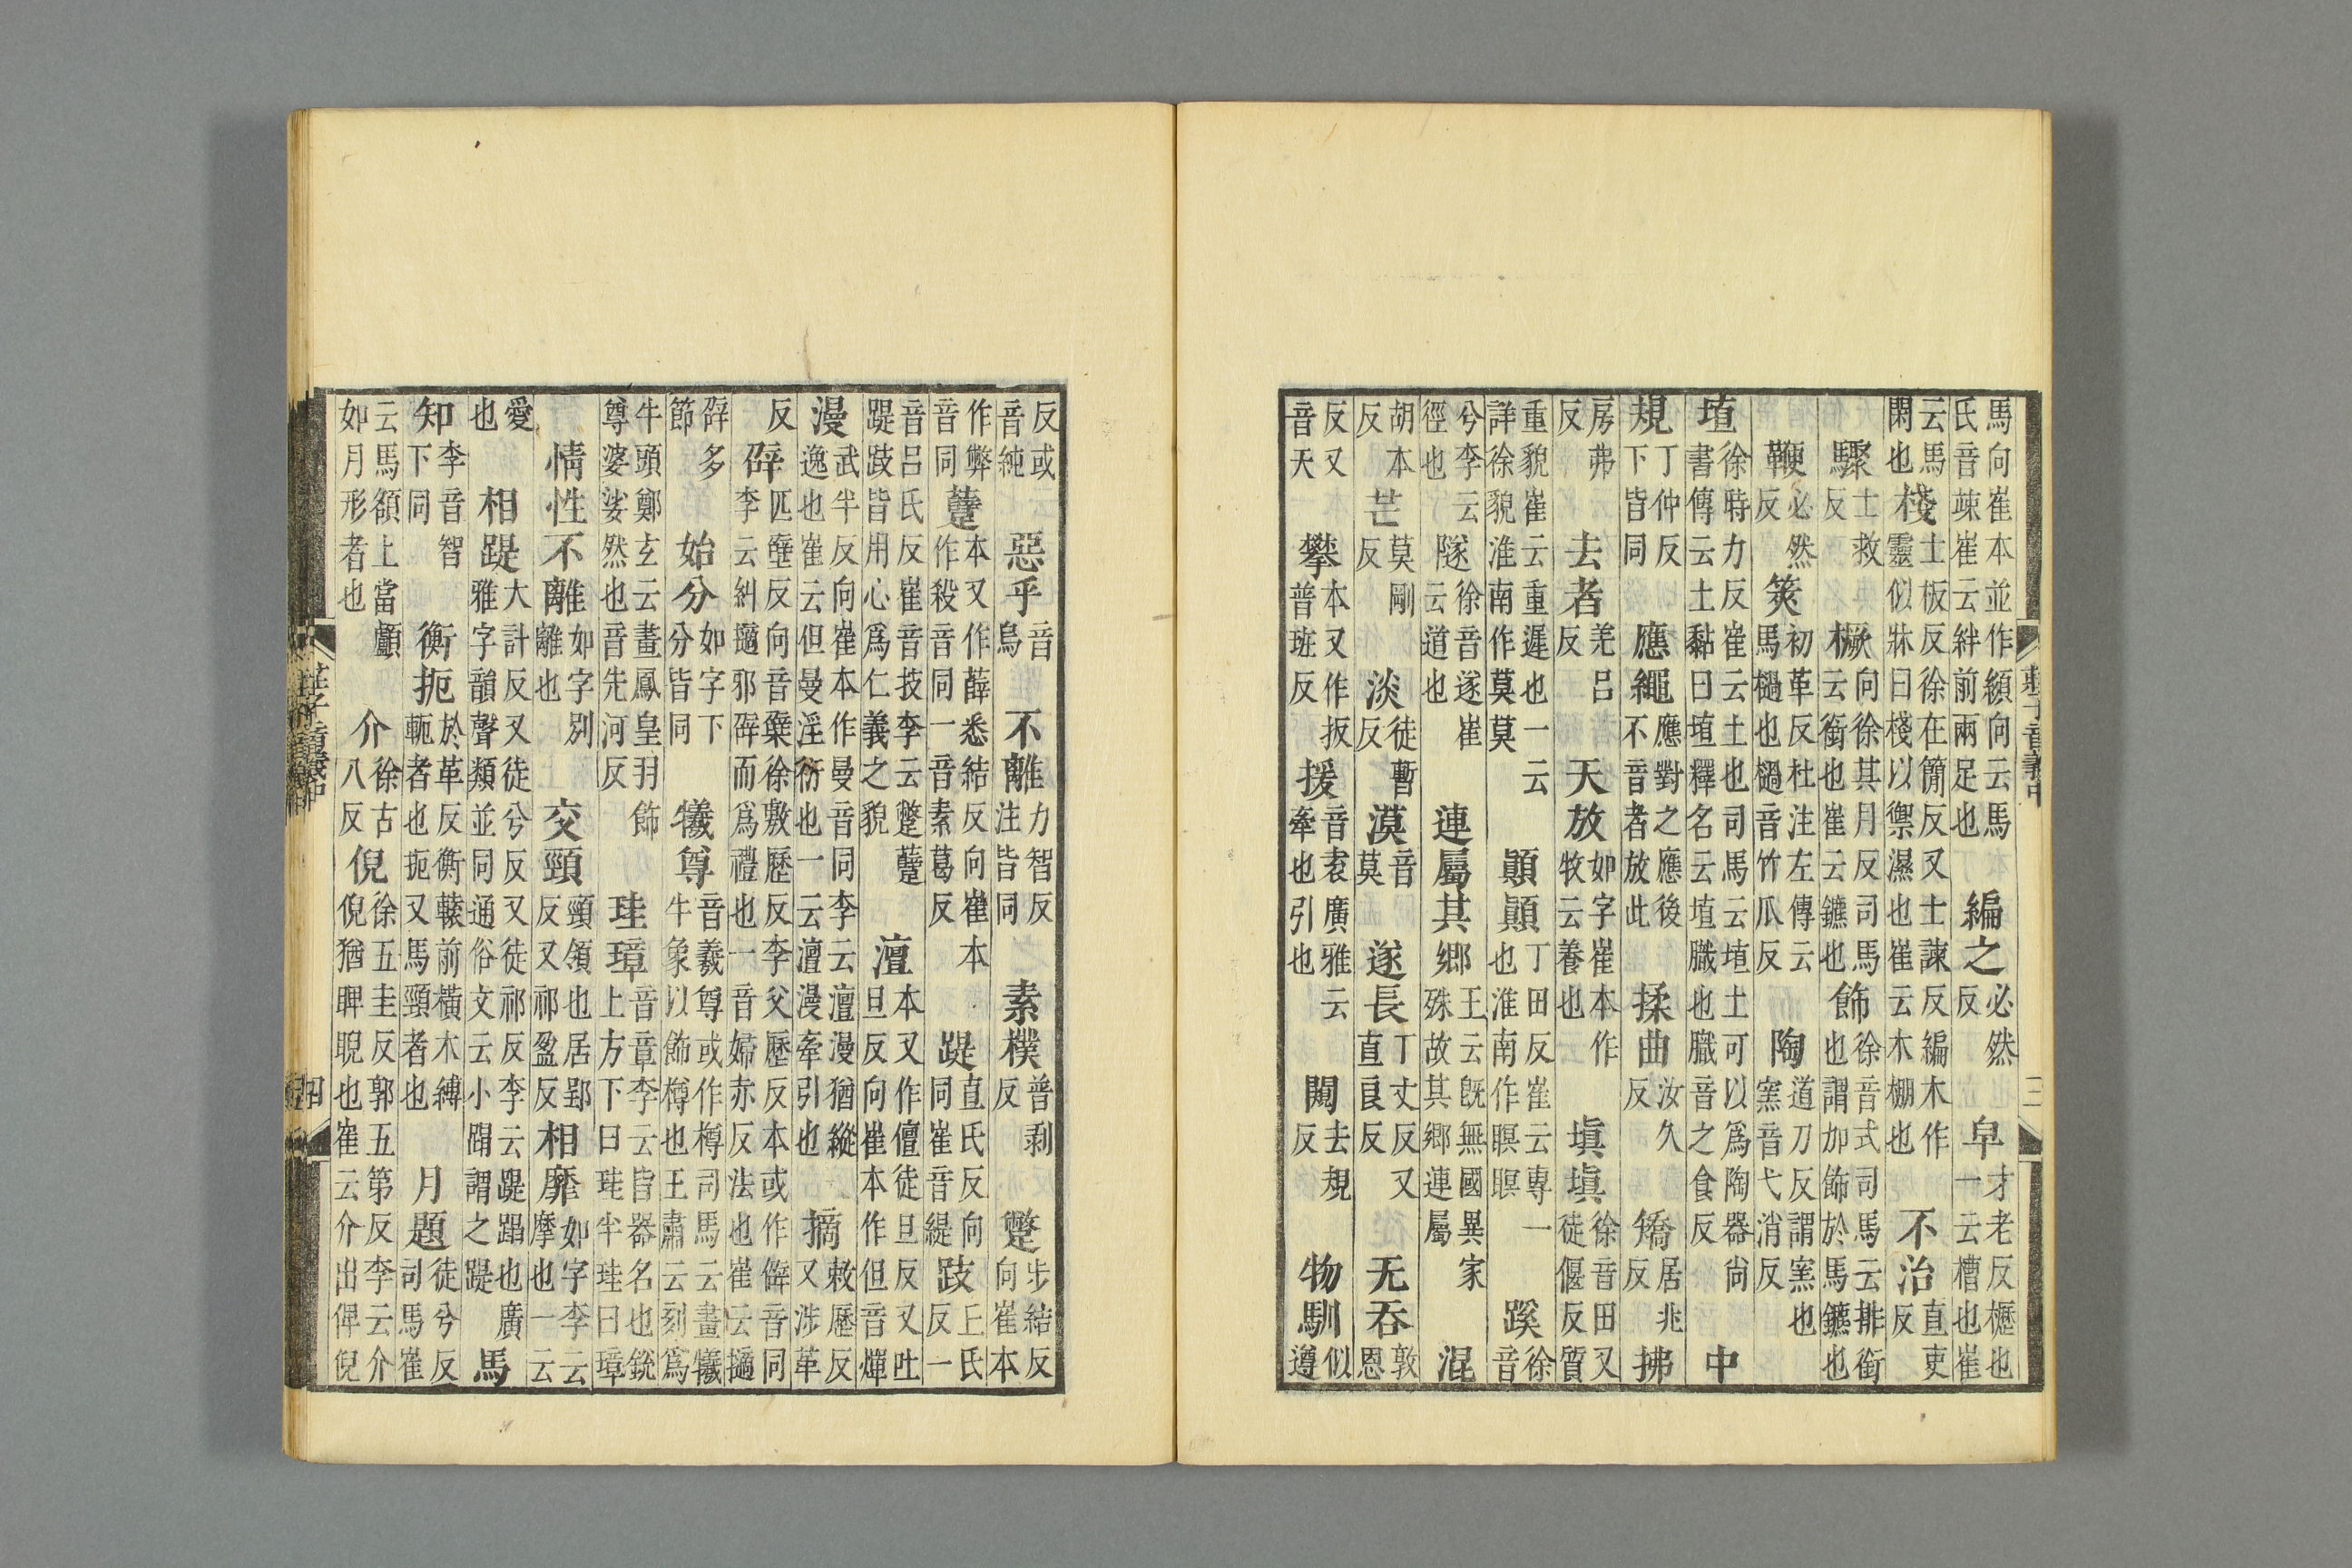 莊子音義中 三
馬向崔本並作䫙向云馬氏音竦崔云絆前兩足也 編之必然反 皁才老反櫪也一云槽也崔
云馬閑也 棧士板反徐在簡反又士諫反編木作靈似牀曰棧以禦濕也崔云木棚也 不治直吏反
驟士救反 橛向徐其月反司馬云銜也崔云鑣也 飾徐音式司馬云排銜也謂加飾於馬鑣也
鞭必然反 筴初革反杜注左傳云馬檛也檛音竹瓜反 陶道刀反謂窯也窯音弋消反
埴徐時力反崔云土也司馬云埴土可以爲陶器尚書傳云土黏曰埴釋名云埴膱也膱音之食反 中
規丁仲反下皆同 應繩應對之應後不音者放此 揉曲汝久反 矯居兆反 拂
房弗反 去者羌呂反 天放如字崔本作牧云養也 塡塡徐音田又徒偃反質
重貌崔云重遲也一云詳徐貌淮南作莫莫 顚顚丁田反崔云專一也淮南作瞑瞑 蹊徐音
兮李云徑也 隧徐音遂崔云道也 連屬其鄉王云旣無國異家殊故其鄉連屬 混
胡本反 芒莫剛反 淡徒暫反 漠音莫 遂長丁丈反又直良反 无吞敦恩
反又音天 攀本又作扳普班反 援音袁廣雅云牽也引也 闚去規反 物馴似遵
反或音純 惡乎音烏 不離力智反注皆同 素樸普剥反 蹩步結反向崔本
作弊音同 躠本又作薛悉結反向崔本作殺音同一音素葛反 踶直氏反向同崔音緹 跂丘氏反一
音呂氏反崔音技李云蹩躠踶跂皆用心爲仁義之貌 澶本又作儃徒旦反又吐旦反向崔本作但音燀
漫武半反向崔本作曼音同李云澶漫猶縱逸也崔云但曼淫衍也一云澶漫牽引也 摘敕歷反又涉革
反 辟匹壁反向音檗徐敷歷反李父歷反本或作僻音同李云糾擿邪辟而爲禮也一音婦赤反法也崔云擿
辟多節 始分如字下分皆同 犧尊音羲尊或作樽司馬云畫犧牛象以飾樽也王肅云刻爲
牛頭鄭玄云畫鳳皇羽飾尊婆娑然也音先河反 珪璋音章李云皆器名也銳上方下曰珪半珪曰璋
情性不離如字別離也 交頸頸領也居郢反又祁盈反 相靡如字李云摩也一云
愛也 相踶大計反又徒兮反又徒祁反李云踶蹋也廣雅字韻聲類並同通俗文云小蹋謂之踶 馬
知李音智下同 衡扼於革反衡轅前橫木縛軛者也扼又馬頸者也 月題徒兮反司馬崔
云馬頟上當顱如月形者也 介徐古八反 倪徐五圭反郭五第反李云介倪猶睥睨也崔云介出俾倪
莊子音義中 四